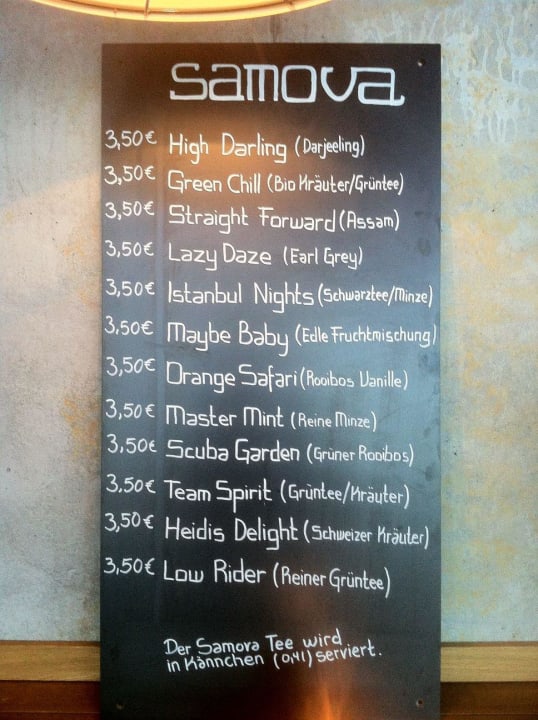 samova
3,50€ High Darling (Darjeeling)
3,50€ Green Chill (Bio Kräuter/Grüntee)
3,50€ Straight Forward (Assam)
3,50€ Lazy Daze (Earl Grey)
3,50€ Istanbul Nights (Schwarztee/Minze)
3,50€ Maybe Baby (Edle Fruchtmischung)
3,50€ Orange Safari (Rooibos Vanille)
3,50€ Master Mint (Reine Minze)
3,50€ Scuba Garden (Grüner Rooibos)
3,50€ Team Spirit (Grüntee/Kräuter)
3,50€ Heidis Delight (Schweizer Kräuter)
3,50€ Low Rider (Reiner Grüntee)
Der Samova Tee wird
in Kännchen (0,4l) serviert.